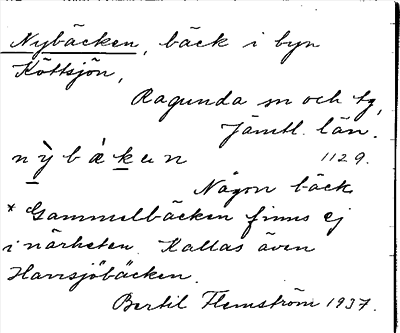 Nybäcken, bäck i byn
Köttsjön,
Ragunda sn och tg,
Jämtl. län.
nỳbäkɛn 1129.
Någon bäck
* Gammelbäcken finns ej
i närheten. Kallas även
Hansjöbäcken.
Bertil Flemström 1937.